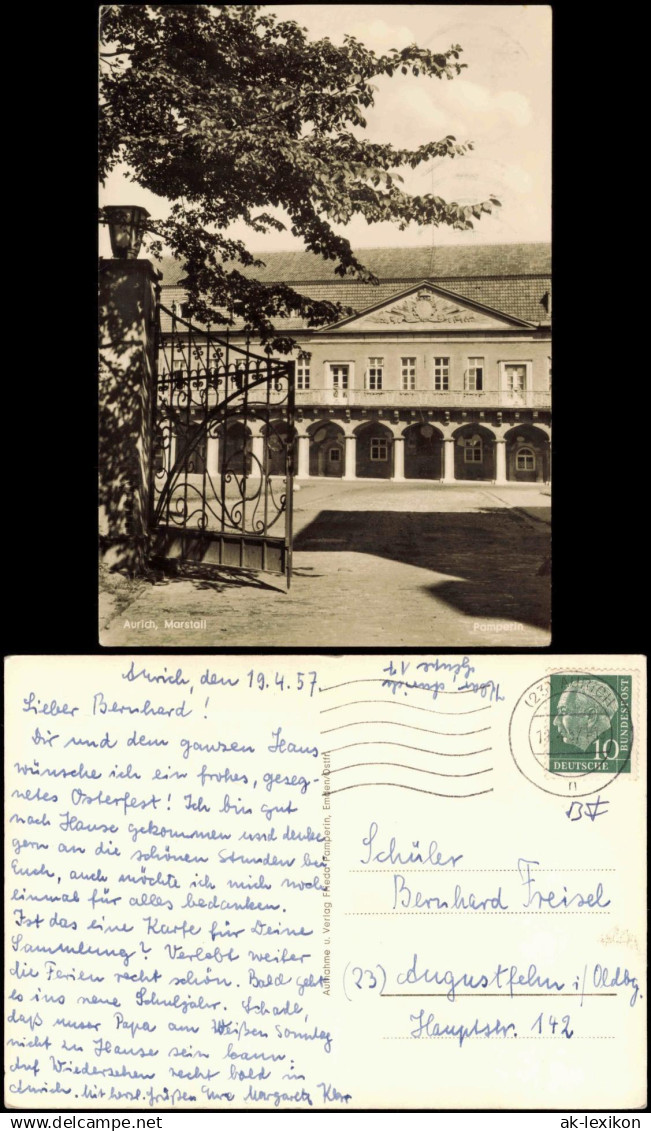 Aurich, Marstall
Pamperin
Aurich, den 19.4.57.
Lieber Bernhard!
Dir und dem ganzen Haus
wünsche ich ein frohes, geseg-
netes Osterfest! Ich bin gut
nach Hause gekommen und denke
gern an die schönen Stunden bei
Euch, auch möchte ich mich noch
einmal für alles bedanken.
Ist das eine Karte für Deine
Sammlung? Verlebt weiter
die Ferien recht schön. Bald geht
es ins neue Schuljahr. Schade,
daß unser Papa am Weißen Sonntag
nicht zu Hause sein kann.
Auf Wiedersehen recht bald in
Aurich. Mit herzl. Grüßen Eure Margaretz Klar
Aufnahme u. Verlag Frieda Pamperin, Emden/Ostfr.
(23)
DEUTSCHE
BUNDESPOST
10
Schüler
Bernhard Freisel
(23) Augustfehn i/Oldbg.
Hauptstr. 142
www.delcampe.net
ak-lexikon